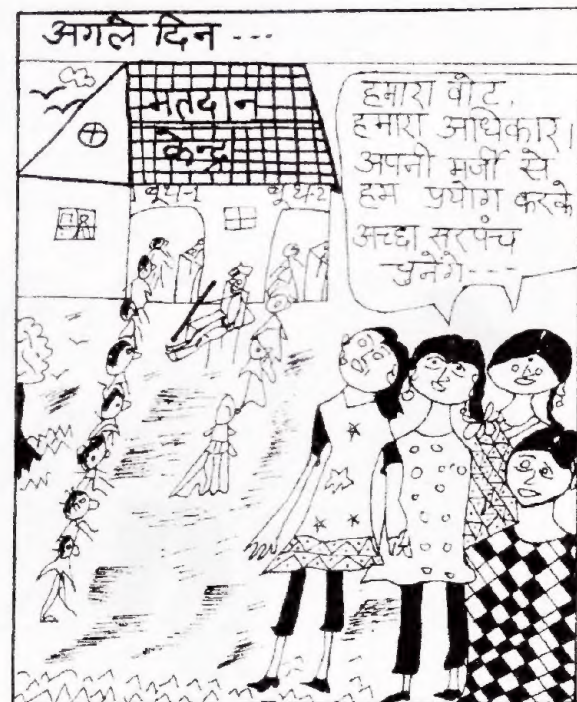 अगले दिन ---
मतदान
केन्द्र
बूथ-1
बूथ-2
हमारा वोट,
हमारा अधिकार।
अपनी मर्जी से
हम प्रयोग करके
अच्छा सरपंच
चुनेंगे---